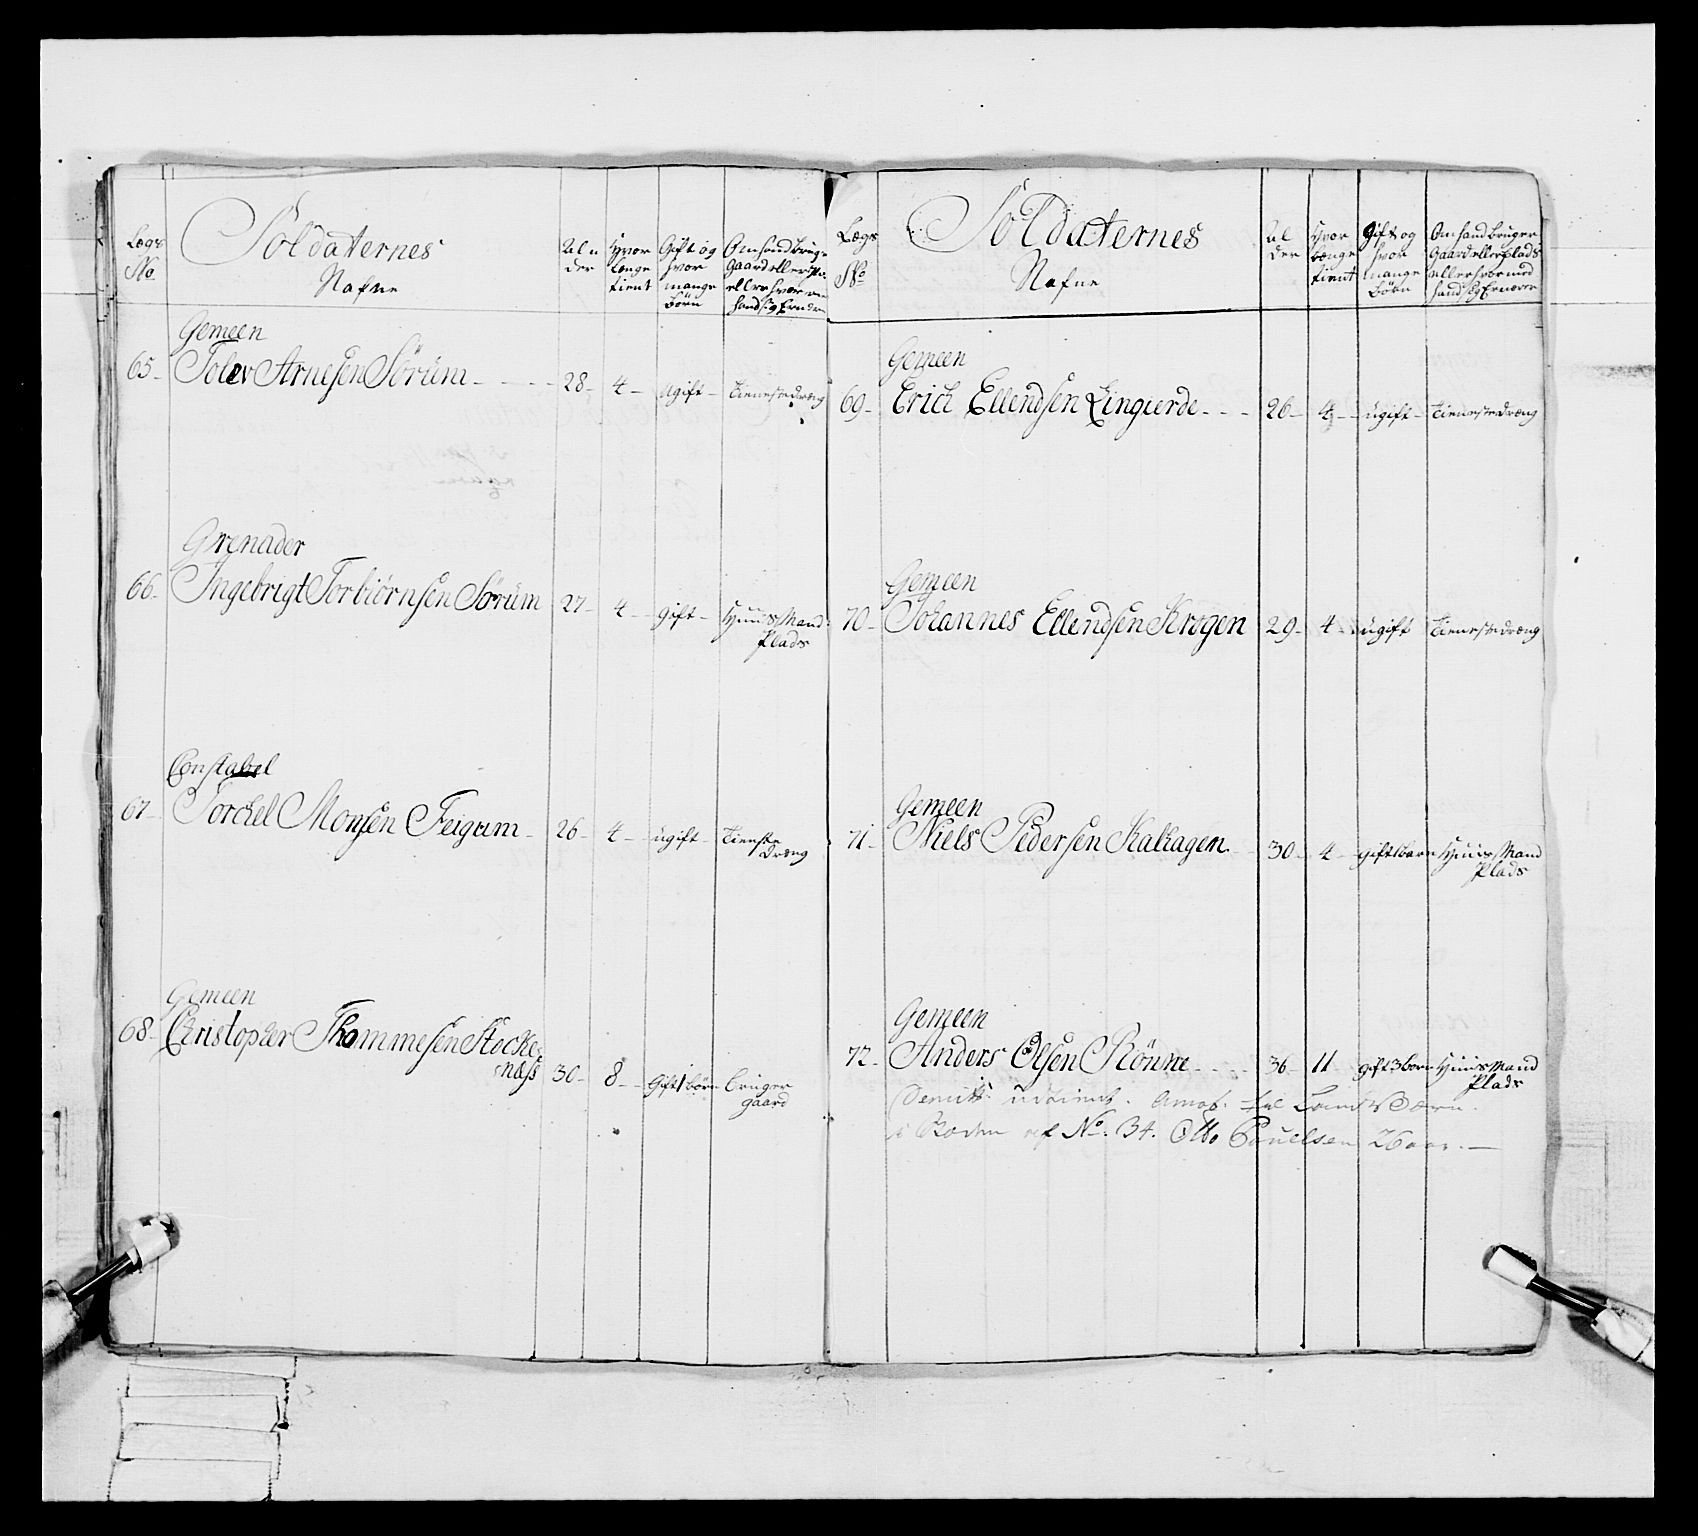 Lægs No
Soldaternes Nafne
Alder
Hvor Længe tient
Gift og hvor mange Börn
Om hand bruger Gaard eller Plads eller hvor med hand sig Ernærer
Gemeen
65 Tolev Arnesen Sørum 28 4 ugift Tienestedræng
Grenader
66 Ingebrigt Torbiørnsen Sørum 27 4 gift Huus Mand
Plads
Constabel
67 Torchel Monsen Feigum 26 4 ugift Tieneste
dræng
Gemeen
68 Christopher Thommesen Stocke
næss 30 8 Gift 1 börn bruger
gaard
Lægs No
Soldaternes Nafne
Alder
Hvor Længe tient
Gift og hvor mange Börn
Om hand bruger Gaard eller Plads eller hvor med hand sig Ernærer
Gemeen
69 Erich Ellendsen Lingierde 26 4 ugift Tienestedræng
Gemeen
70 Johannes Ellendsen Krogen 29 4 ugift Tienestedræng
Gemeen
71 Niels Pedersen Kalhagen 30 4 gift 1 barn Huus Mand
Plads
Gemeen
72 Anders Olsen Rönne 36 11 gift 3 born Huus Mand
Plads
udtient. til Land
af No. 34. Otto Pouelsen 26 aar.